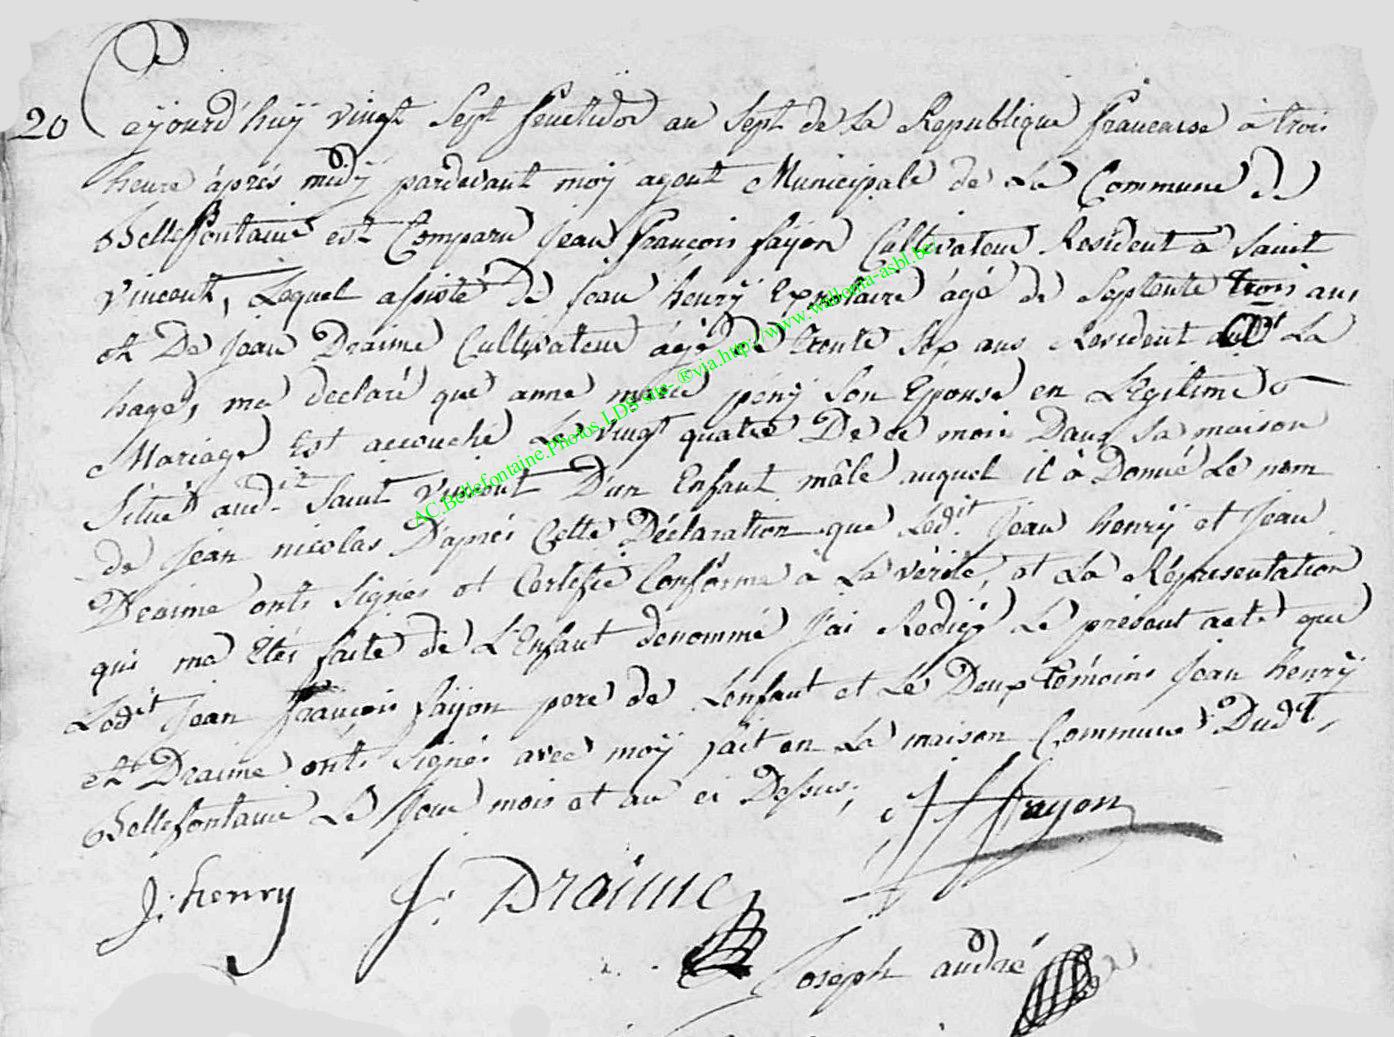 20 Cejourd'huÿ vingt Sept fructidor an Sept de La Republique francaise à trois
heure àprés midÿ pardevant moÿ agent Municipale de La Commune de
Bellefontaine est Comparu jean françois faÿon Cultivateur Resident a Saint
Vincent, Lequel assisté de jean henrÿ Exprétaire âgé de Septente trois ans
et De jean Draime Cultivateur âgé de trente Six ans Resident aud.t La
hage, ma declaré que anne marie penÿ Son Epouse en Legitime
Mariage Est accouché Le vingt quatre De ce mois Dans Sa maison
Située aud.it Saint Vincent D'un Enfant mâle auquel il à Donné Le nom
de jean nicolas D'aprés Cette Déclaration que Led.it Jean henrÿ et Jean
Draime onts signés et Certifié Conforme à La vérité, et La Réprésentation
qui ma Etés faite de L'Enfant denommé J'ai Redigé Le présent acte que
Ledit Jean françois faÿon pere de Lenfant et Le Deux témoins jean henrÿ
et Draime onts signés avec moÿ fait en La maison Commune Dudt,
Bellefontaine Le Jour mois et an ci Dessus;
JF fayon
J: henry J: Draime
Joseph andré
AC.Bellefontaine.Photos.LDB site-®via.http://www.wallonia-asbl.be/